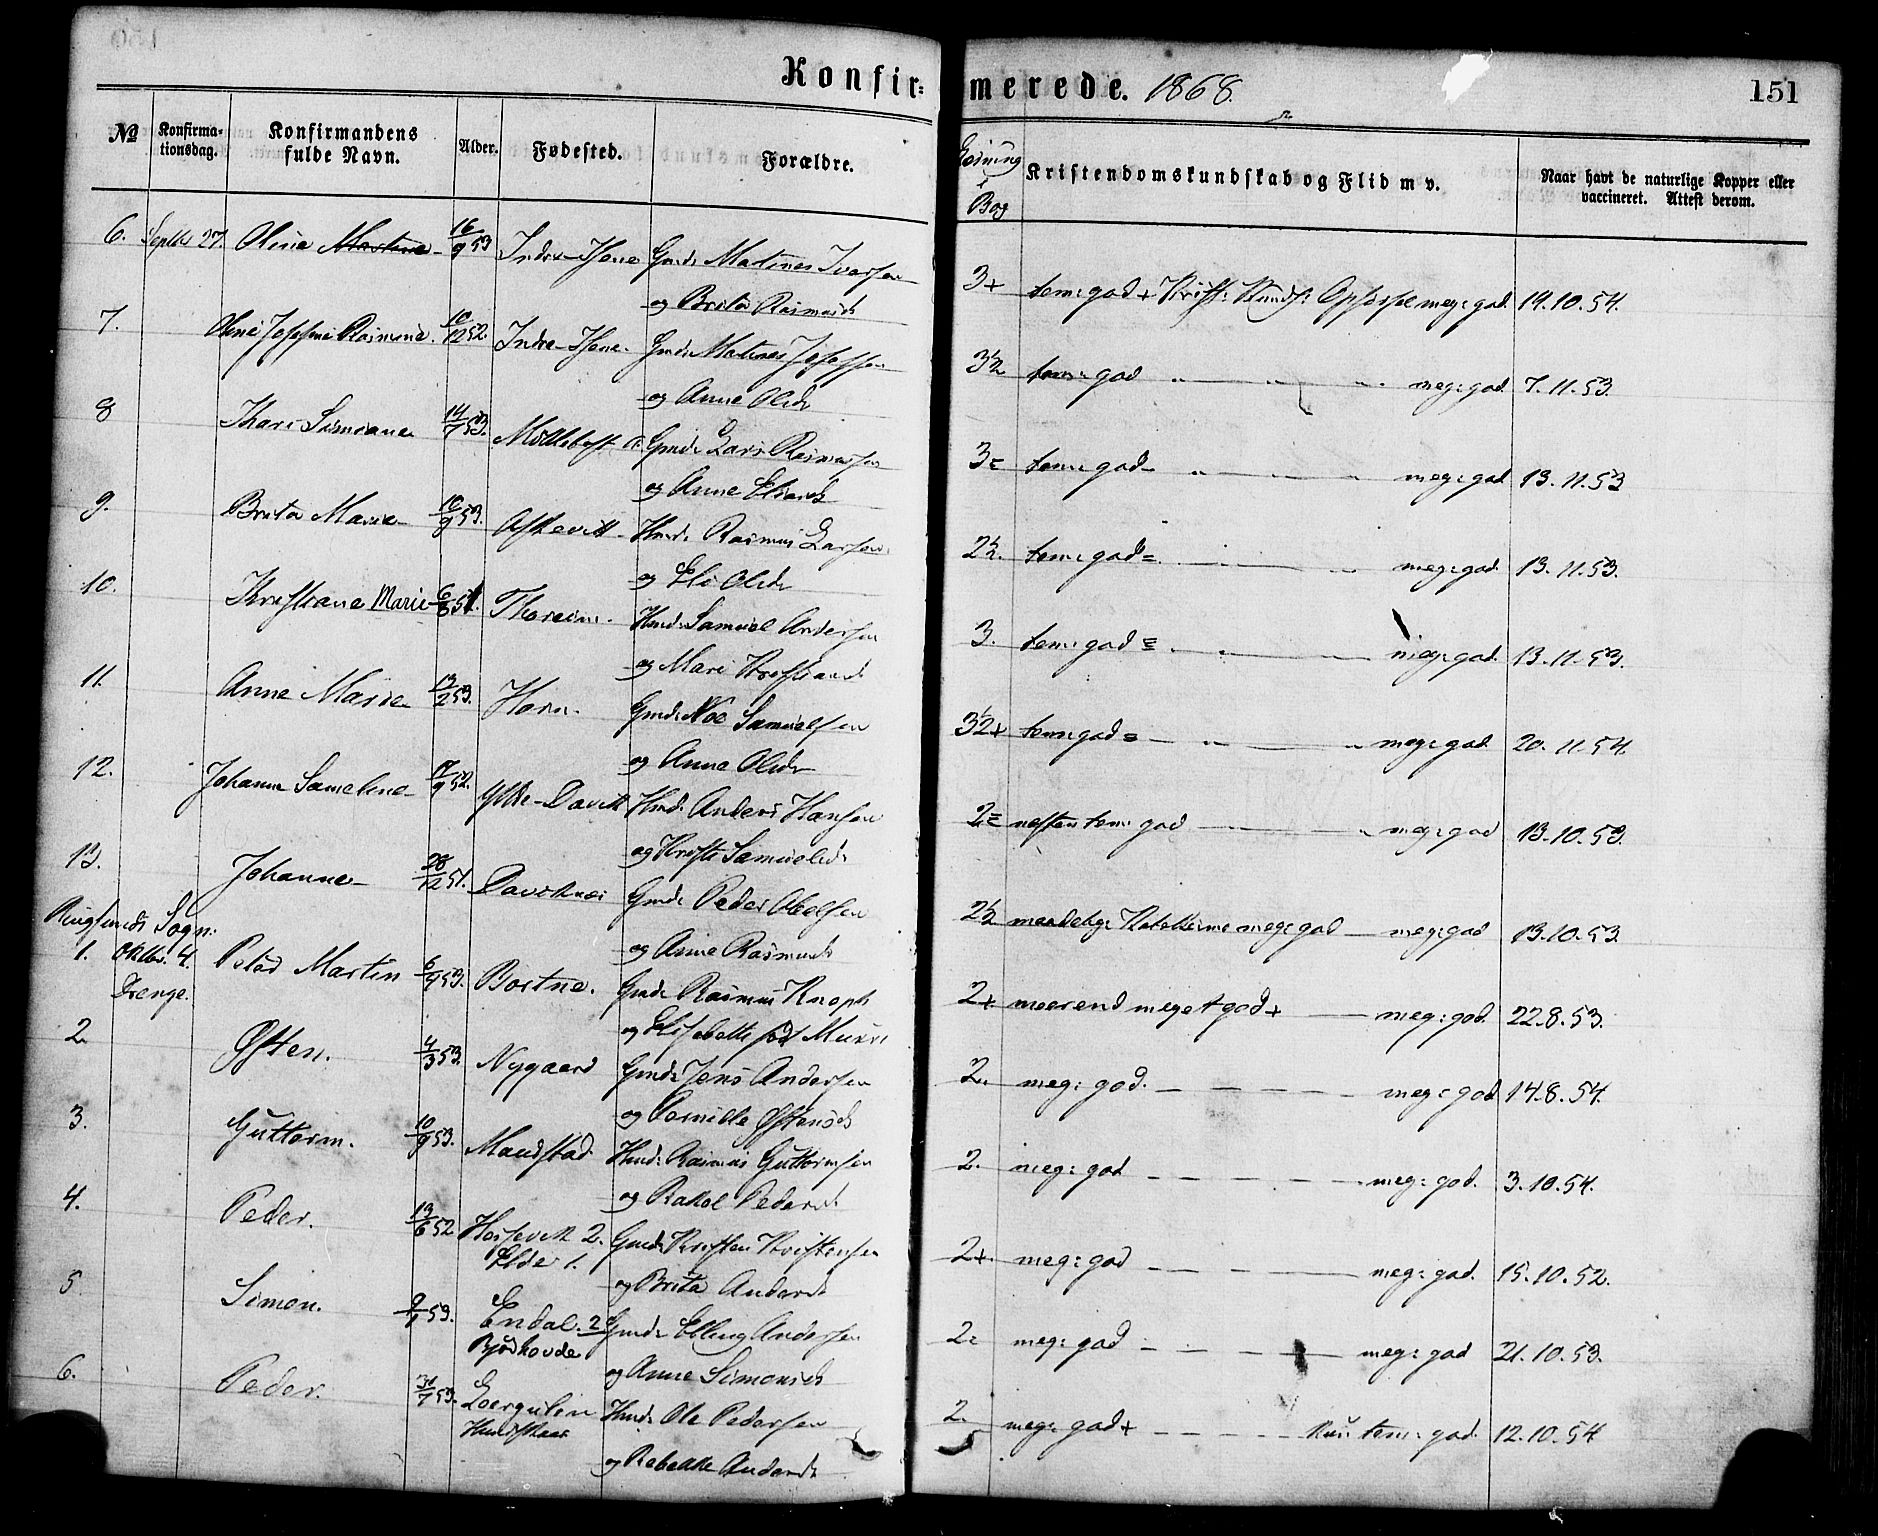 Konfir=
merede. 1868.
151
No
Konfirma-
tionsdag.
Konfirmandens
fulde Navn.
Alder.
Fødested.
Forældre.
Læsning
i
Bog
Kristendomskundskab og Flid m v.
Naar havt de naturlige Kopper eller
vaccineret. Attest derom.
6. Septbr 27. Oline Martine 16/9 53 Indre-Hene Gmd. Matines Iversen
og Brita Rasmusd
3+ tem: god + meg: god. 19.10.54.
7. Oline Josefine Rasmine. 10/12 52. Indre-Hene. Gmd. Matines Josefsen
og Anne Olsdr
3½ tem: god " " " meg: god. 7.11.53.
8 Kari Simiane 14/7 53. Myklebost Gmd. Lars Rasmussen
og Anne Eliasd
3= tem: god- " meg: god 13.11.53
9. Brita Marie 10/9 53. Askevik Hmd. Rasmus Larsen
og Eli Olsdr
2½. tem: god = meg: god. 13.11.53.
10. Kristiane Marie 6/8 51. Thoreim. Hmd. Samuel Andersen
og Mari Kristiansd
3. tem: god = meg: god. 13.11.53.
11. Anne Marie 13/2 53. Horn. Gmd. Noe Samuelsen
og Anne Olsdr
3½+ tem: god = " " meg: god. 20.11.54.
12. Johanne Sameline 17/9 52. Ytre-Davik Hmd. Anders Hansen
og Kristi Samuelsdr
2= næsten tem: god " meg: god 13.10.53.
13. Johanne 28/12 51. Daviknes Gmd. Peder Abelsen
og Anne Rasmusd
2½ maadelig: meg: god meg: god 13.10.53.
Rugsunds Sogn:
1. Oktbr. 4. Peter Martin 6/9 53. Bortne. Gmd. Rasmus Knoph
Drenge.
og Elisabette fød Munk
2+ meerend meget god + meg: god. 22.8.53.
2. Østen. 4/3 53. Nygaard Gmd. Jens Andersen
og Pernille Østensd
2. meg: god. meg: god 14.8.54.
3. Guttorm. 10/9 53. Maurstad Hmd. Rasmus Guttormsen
og Rakel Pedersd
2. meg: god meg: god. 3.10.54.
4. Peder. 13/6 52 Hessevik 2. Gmd. Kristen Kristensen
Elde 1.
og Brita Andersd
2+. meg: god meg: god. 15.10.52.
5 Simon. 9/1 53. Endal. 2 Gmd. Elling Andersen
Bjørhovde
og Anne Simonsd
2= meg: god meg: god 21.10.53.
6. Peder. 31/7 53. Leergulen Hmd. Ole Pedersen
Hundskaar
og Rebekke Andersd
2. meg: god + kun tem: god. 12.10.54